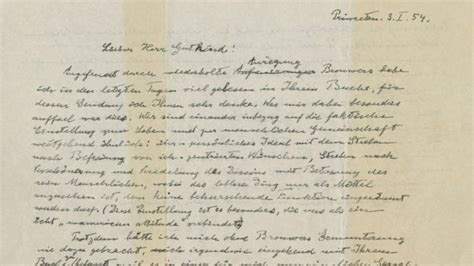 Princeton. 3. I. 54.
Lieber Herr Gutkind!
Anregung
Angefeuert durch wiederholte Brouwers habe
ich in den letzten Tagen viel gelesen in Ihrem Buche, für
dessen Sendung ich Ihnen sehr danke. Was mir dabei besonders
auffiel war dies. Wir sind einander inbezug auf die faktische
Einstellung zum Leben und zur menschlichen Gemeinschaft
weitgehend ähnlich: persönliches Ideal mit dem Streben
nach Befreiung von ich-zentrierten Wünschen, Streben nach
Verschönerung und Veredelung des Daseins mit Betonung des
rein Menschlichen, wobei das leblose Ding nur als Mittel
anzusehen ist, dem keine beherrschende Funktion eingeräumt
werden darf. (Diese Einstellung ist es besonders, die uns als ein
echt „unamerican attitude" verbindet.)
Trotzdem hätte ich mich ohne Brouwers Ermunterung
nie dazu gebracht, mich irgendwie eingehend mit Ihrem
es in einer für mich